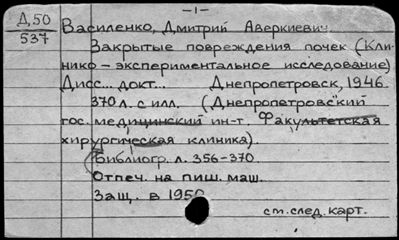 - 1 -
Д,50
537
Василенко, Дмитрий Аверкиевич
Закрытые повреждения почек (Кли-
нико-экспериментальное исследование)
Дисс... докт... Днепропетровск, 1946.
370 л. с илл. (Днепропетровский
гос. медицинский ин-т. Факультетская
хирургическая клиника).
(Библиогр. л. 356-370.
Отпеч. на пиш. маш.
Защ. в 1950
см. след. карт.